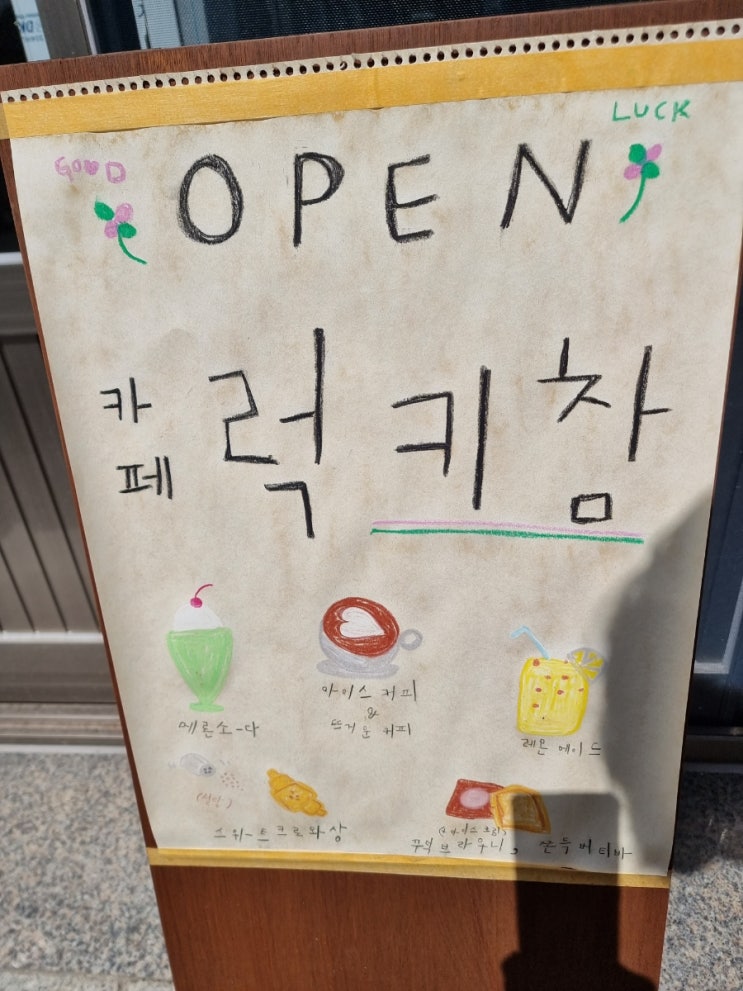 GOOD
LUCK
OPEN
카페
럭키참
메론소-다
아이스커피
&
뜨거운 커피
레몬에이드
스위-트크로와상
꾸덕브라우니, 쫀득버터바